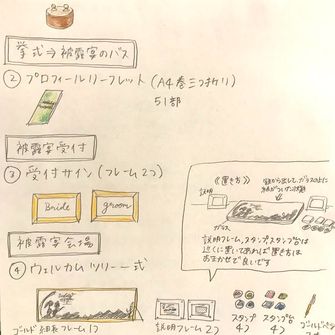 挙式⇒披露宴のバス
② プロフィールリーフレット(A4巻三つ折り)
51部
披露宴受付
③ 受付サイン(フレーム2つ)
Bride
groom
披露宴会場
④ ウェルカムツリー一式
《置き方》
箱から出して、ガラスの上に
紙がついた状態
説明
ガラス
説明フレーム、スタンプ、スタンプ台は
近くに置いてあれば置き方は
おまかせで良いです
ゴールド細長フレーム1つ
説明フレーム2つ
スタンプ
4つ
スタンプ台
4つ